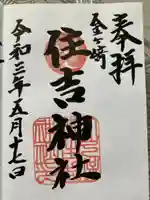 奉拝
金ヶ崎
住吉神社
令和三年五月十七日